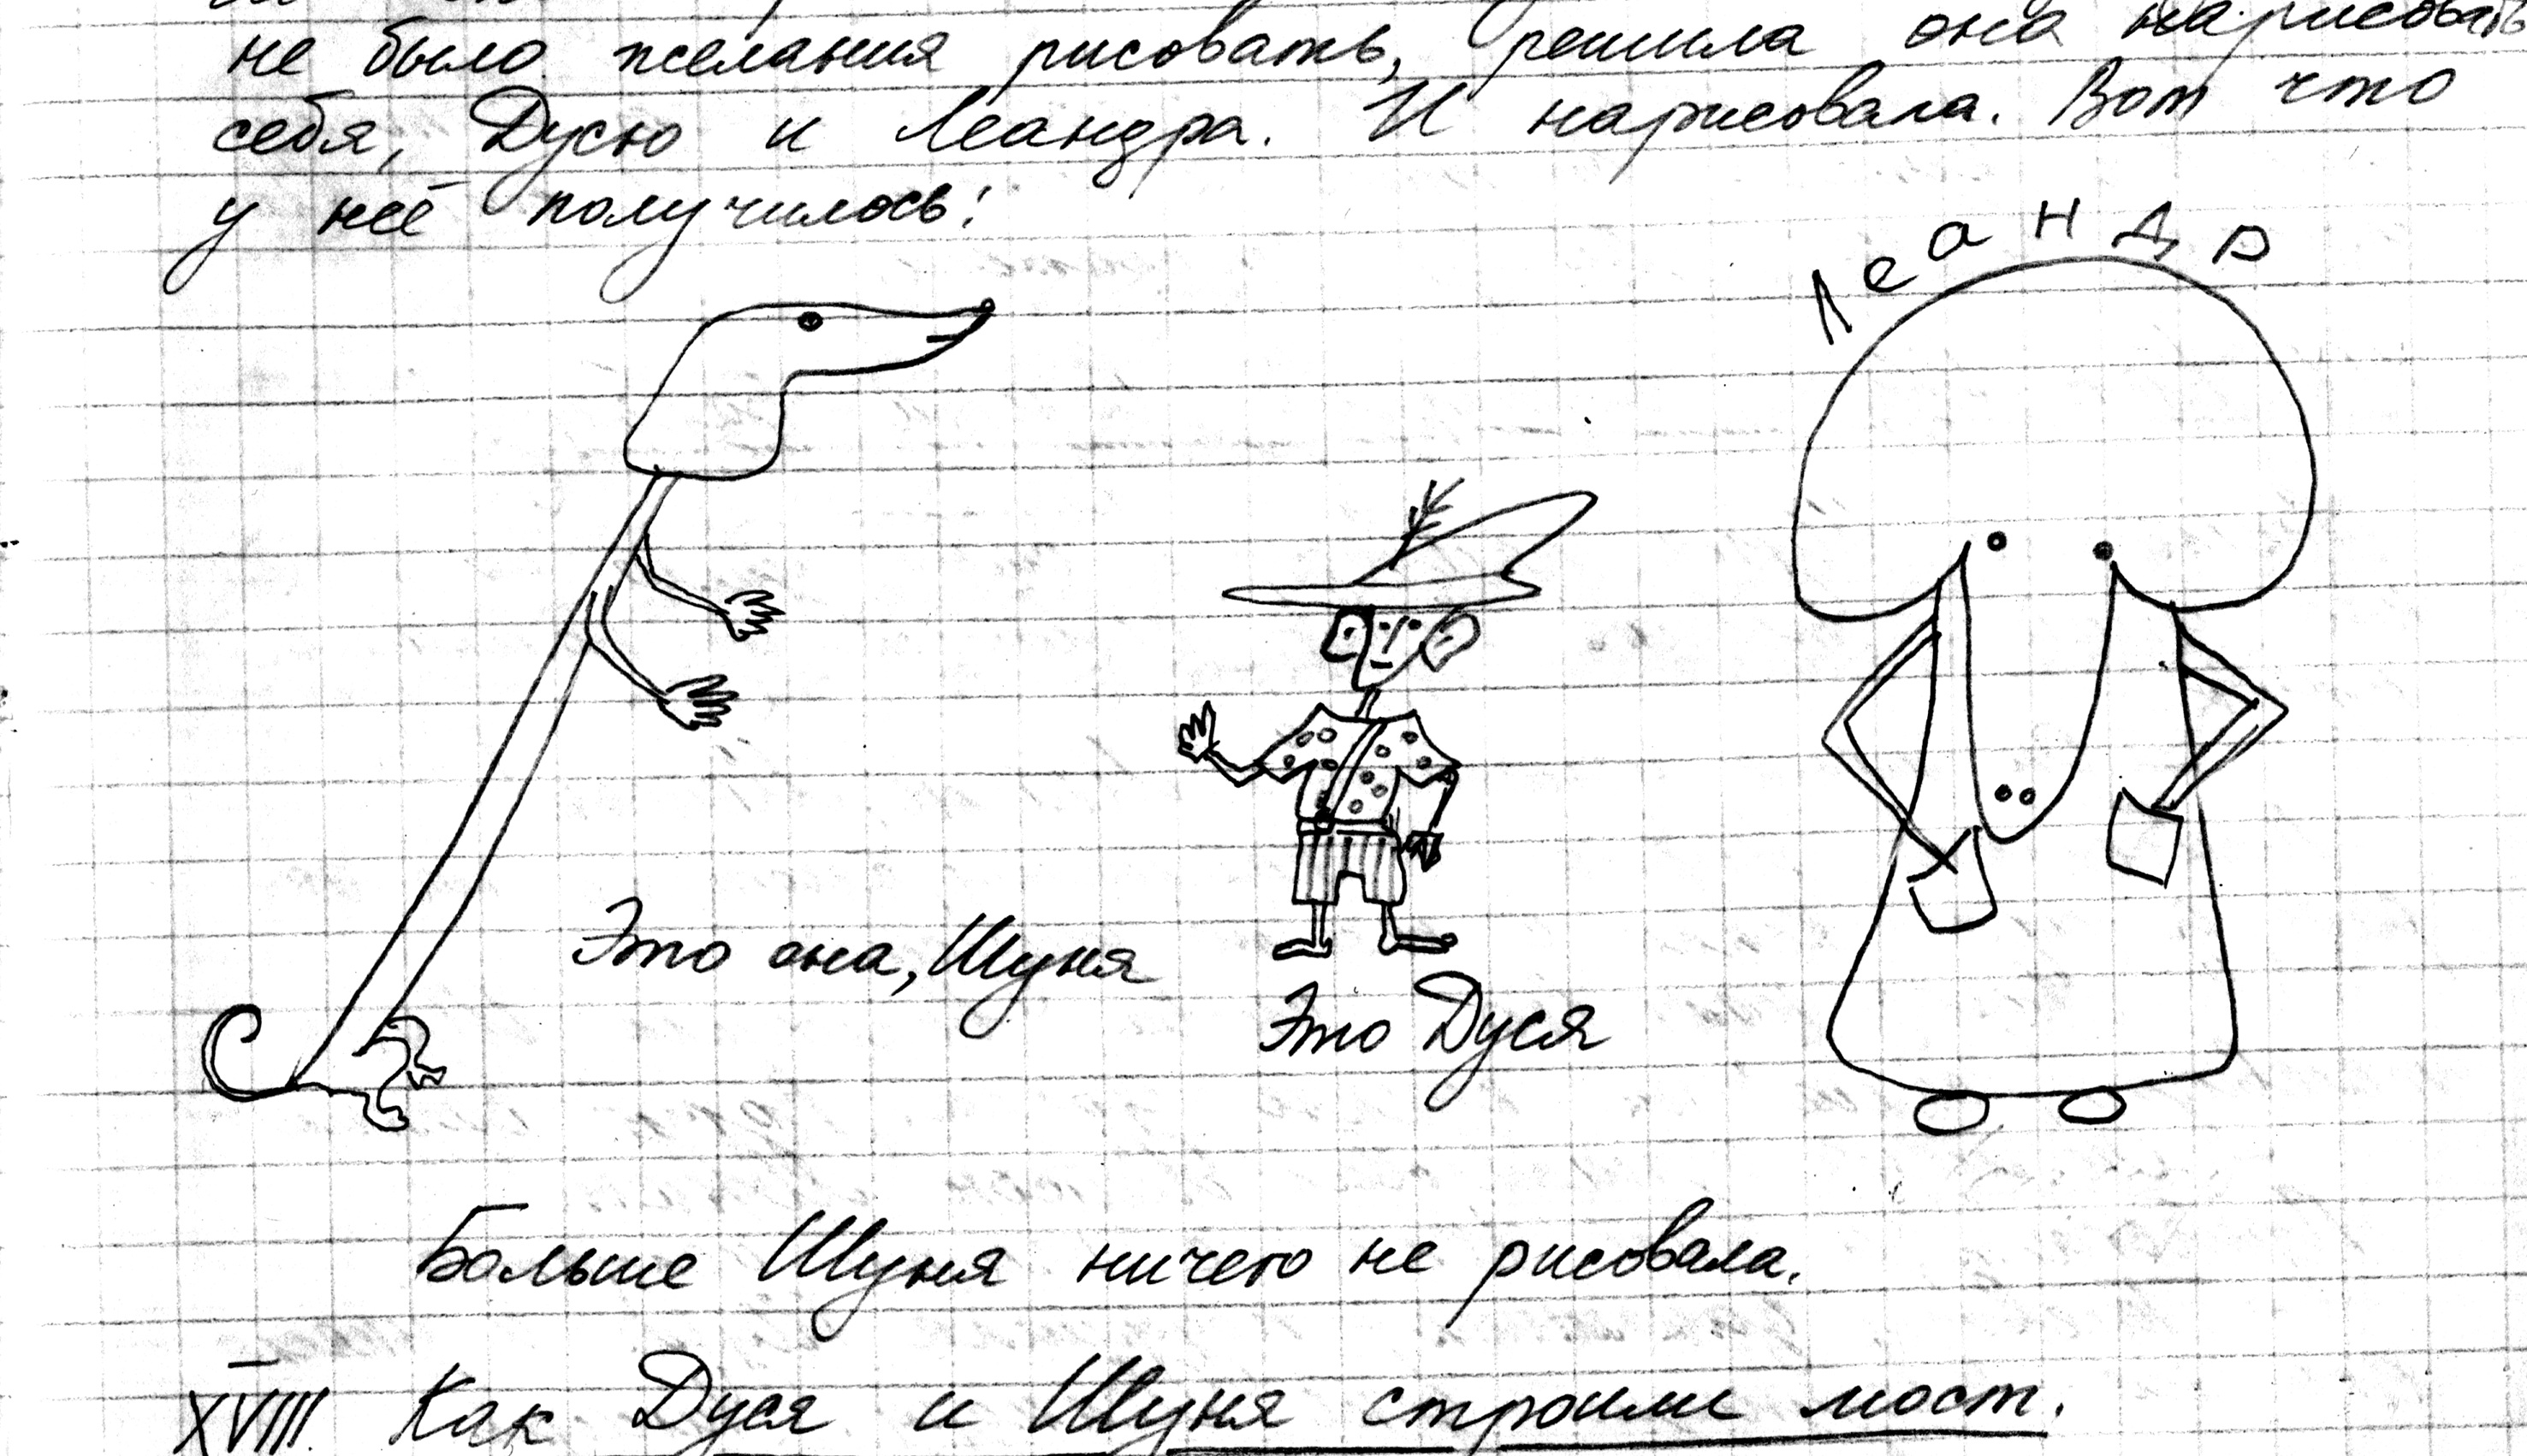 не было желания рисовать, решила она нарисовать
себя, Дусю и Леандра. И нарисовала. Вот что
у неё получилось:
Леандр
Это она, Шуня
Это Дуся
Больше Шуня ничего не рисовала.
XVIII. Как Дуся и Шуня строили мост.